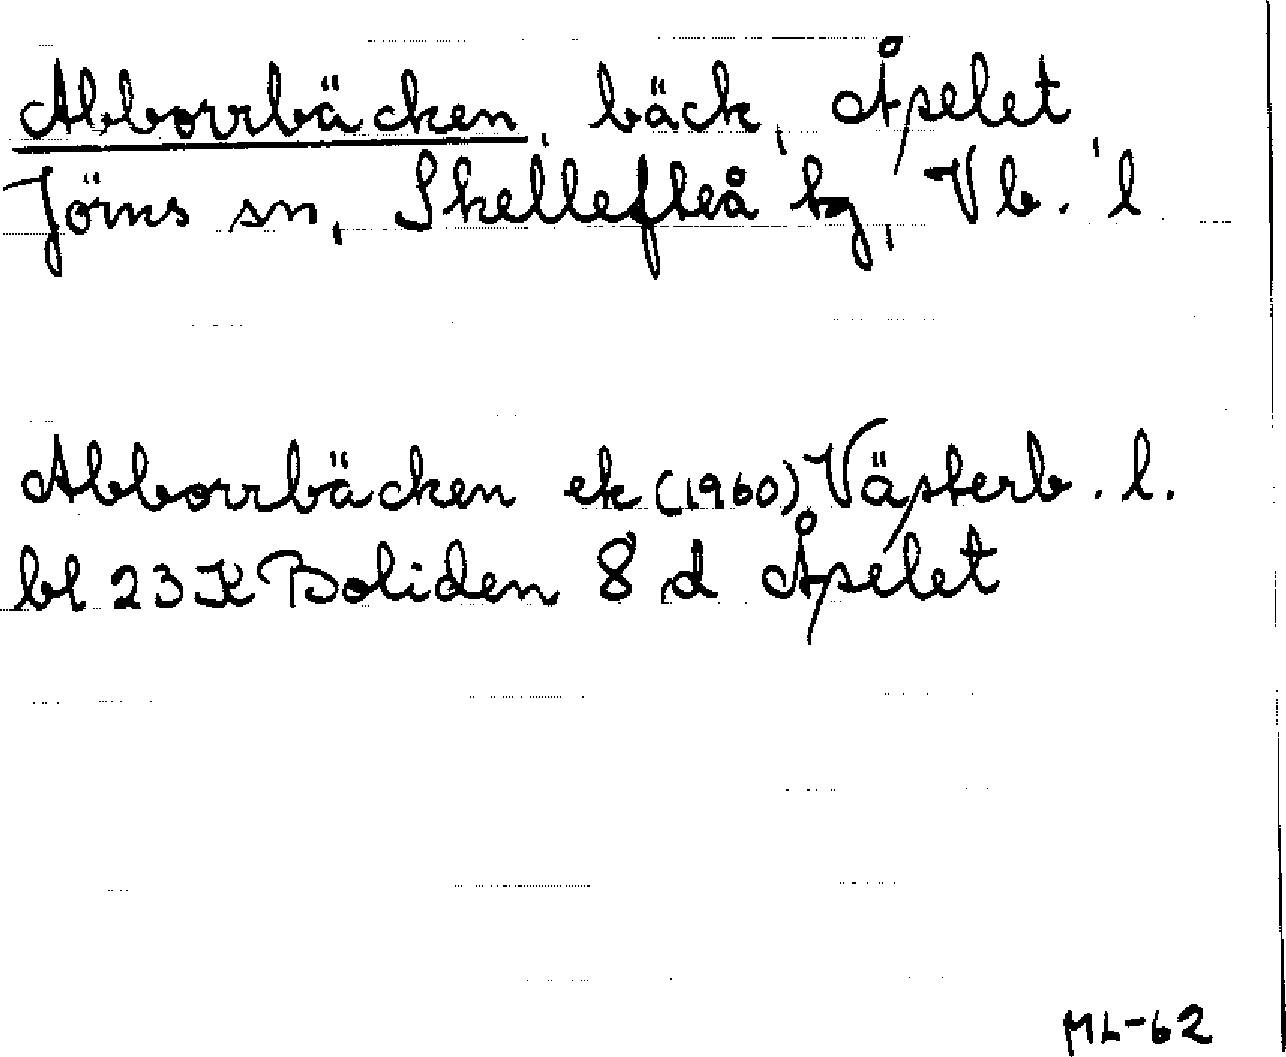 Abborrbäcken, bäck, Åpelet,
Jörns sn, Skellefteå tg, Vb. l
Abborrbäcken ek (1960), Västerb. l.
bl 23 K Boliden 8 d Åpelet
ML-62